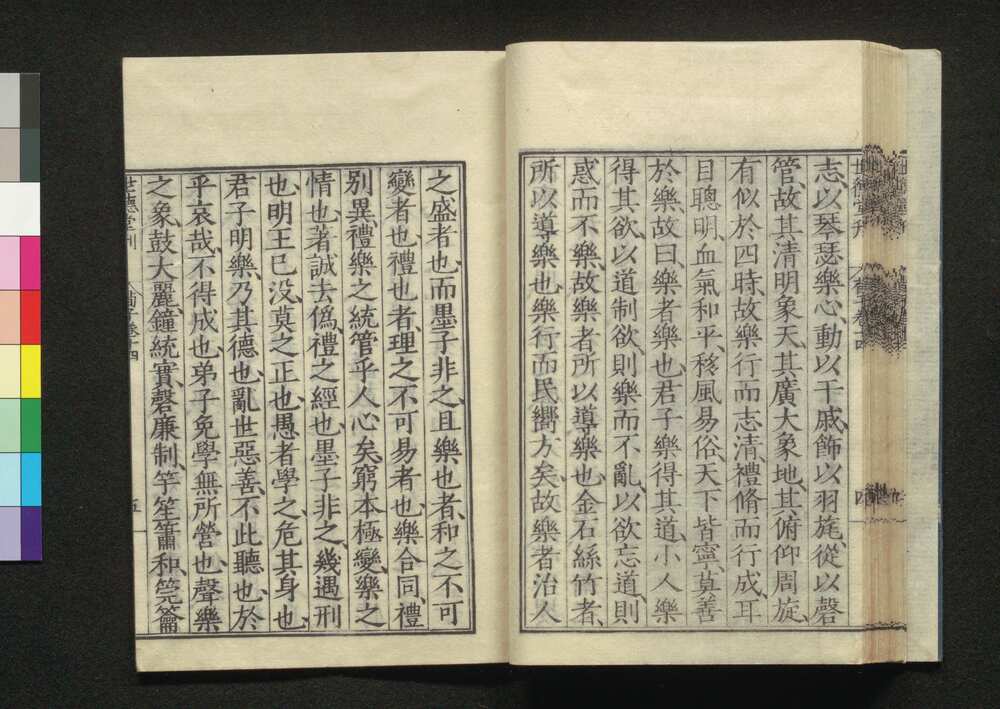 志、以琴瑟樂心、動以干戚、飾以羽旄、從以磬
管、故其清明象天、其廣大象地、其俯仰周旋、
有似於四時、故樂行而志清、禮脩而行成、耳
目聰明、血氣和平、移風易俗、天下皆寧、莫善
於樂、故曰、樂者樂也、君子樂得其道、小人樂
得其欲、以道制欲、則樂而不亂、以欲忘道、則
惑而不樂、故樂者所以導樂也、金石絲竹者、
所以導樂也、樂行而民嚮方矣、故樂者治人
之盛者也、而墨子非之、且樂也者、和之不可
變者也、禮也者、理之不可易者也、樂合同、禮
別異、禮樂之統管乎人心矣、窮本極變、樂之
情也、著誠去偽、禮之經也、墨子非之、幾遇刑
也、明王已没、莫之正也、愚者學之、危其身也、
君子明樂、乃其德也、亂世惡善、不此聽也、於
乎哀哉、不得成也、弟子免學、無所營也、聲樂
之象、鼓大麗、鐘統實、磬廉制、竽笙簫和、筦籥
世德堂刊
荀子卷十四
五